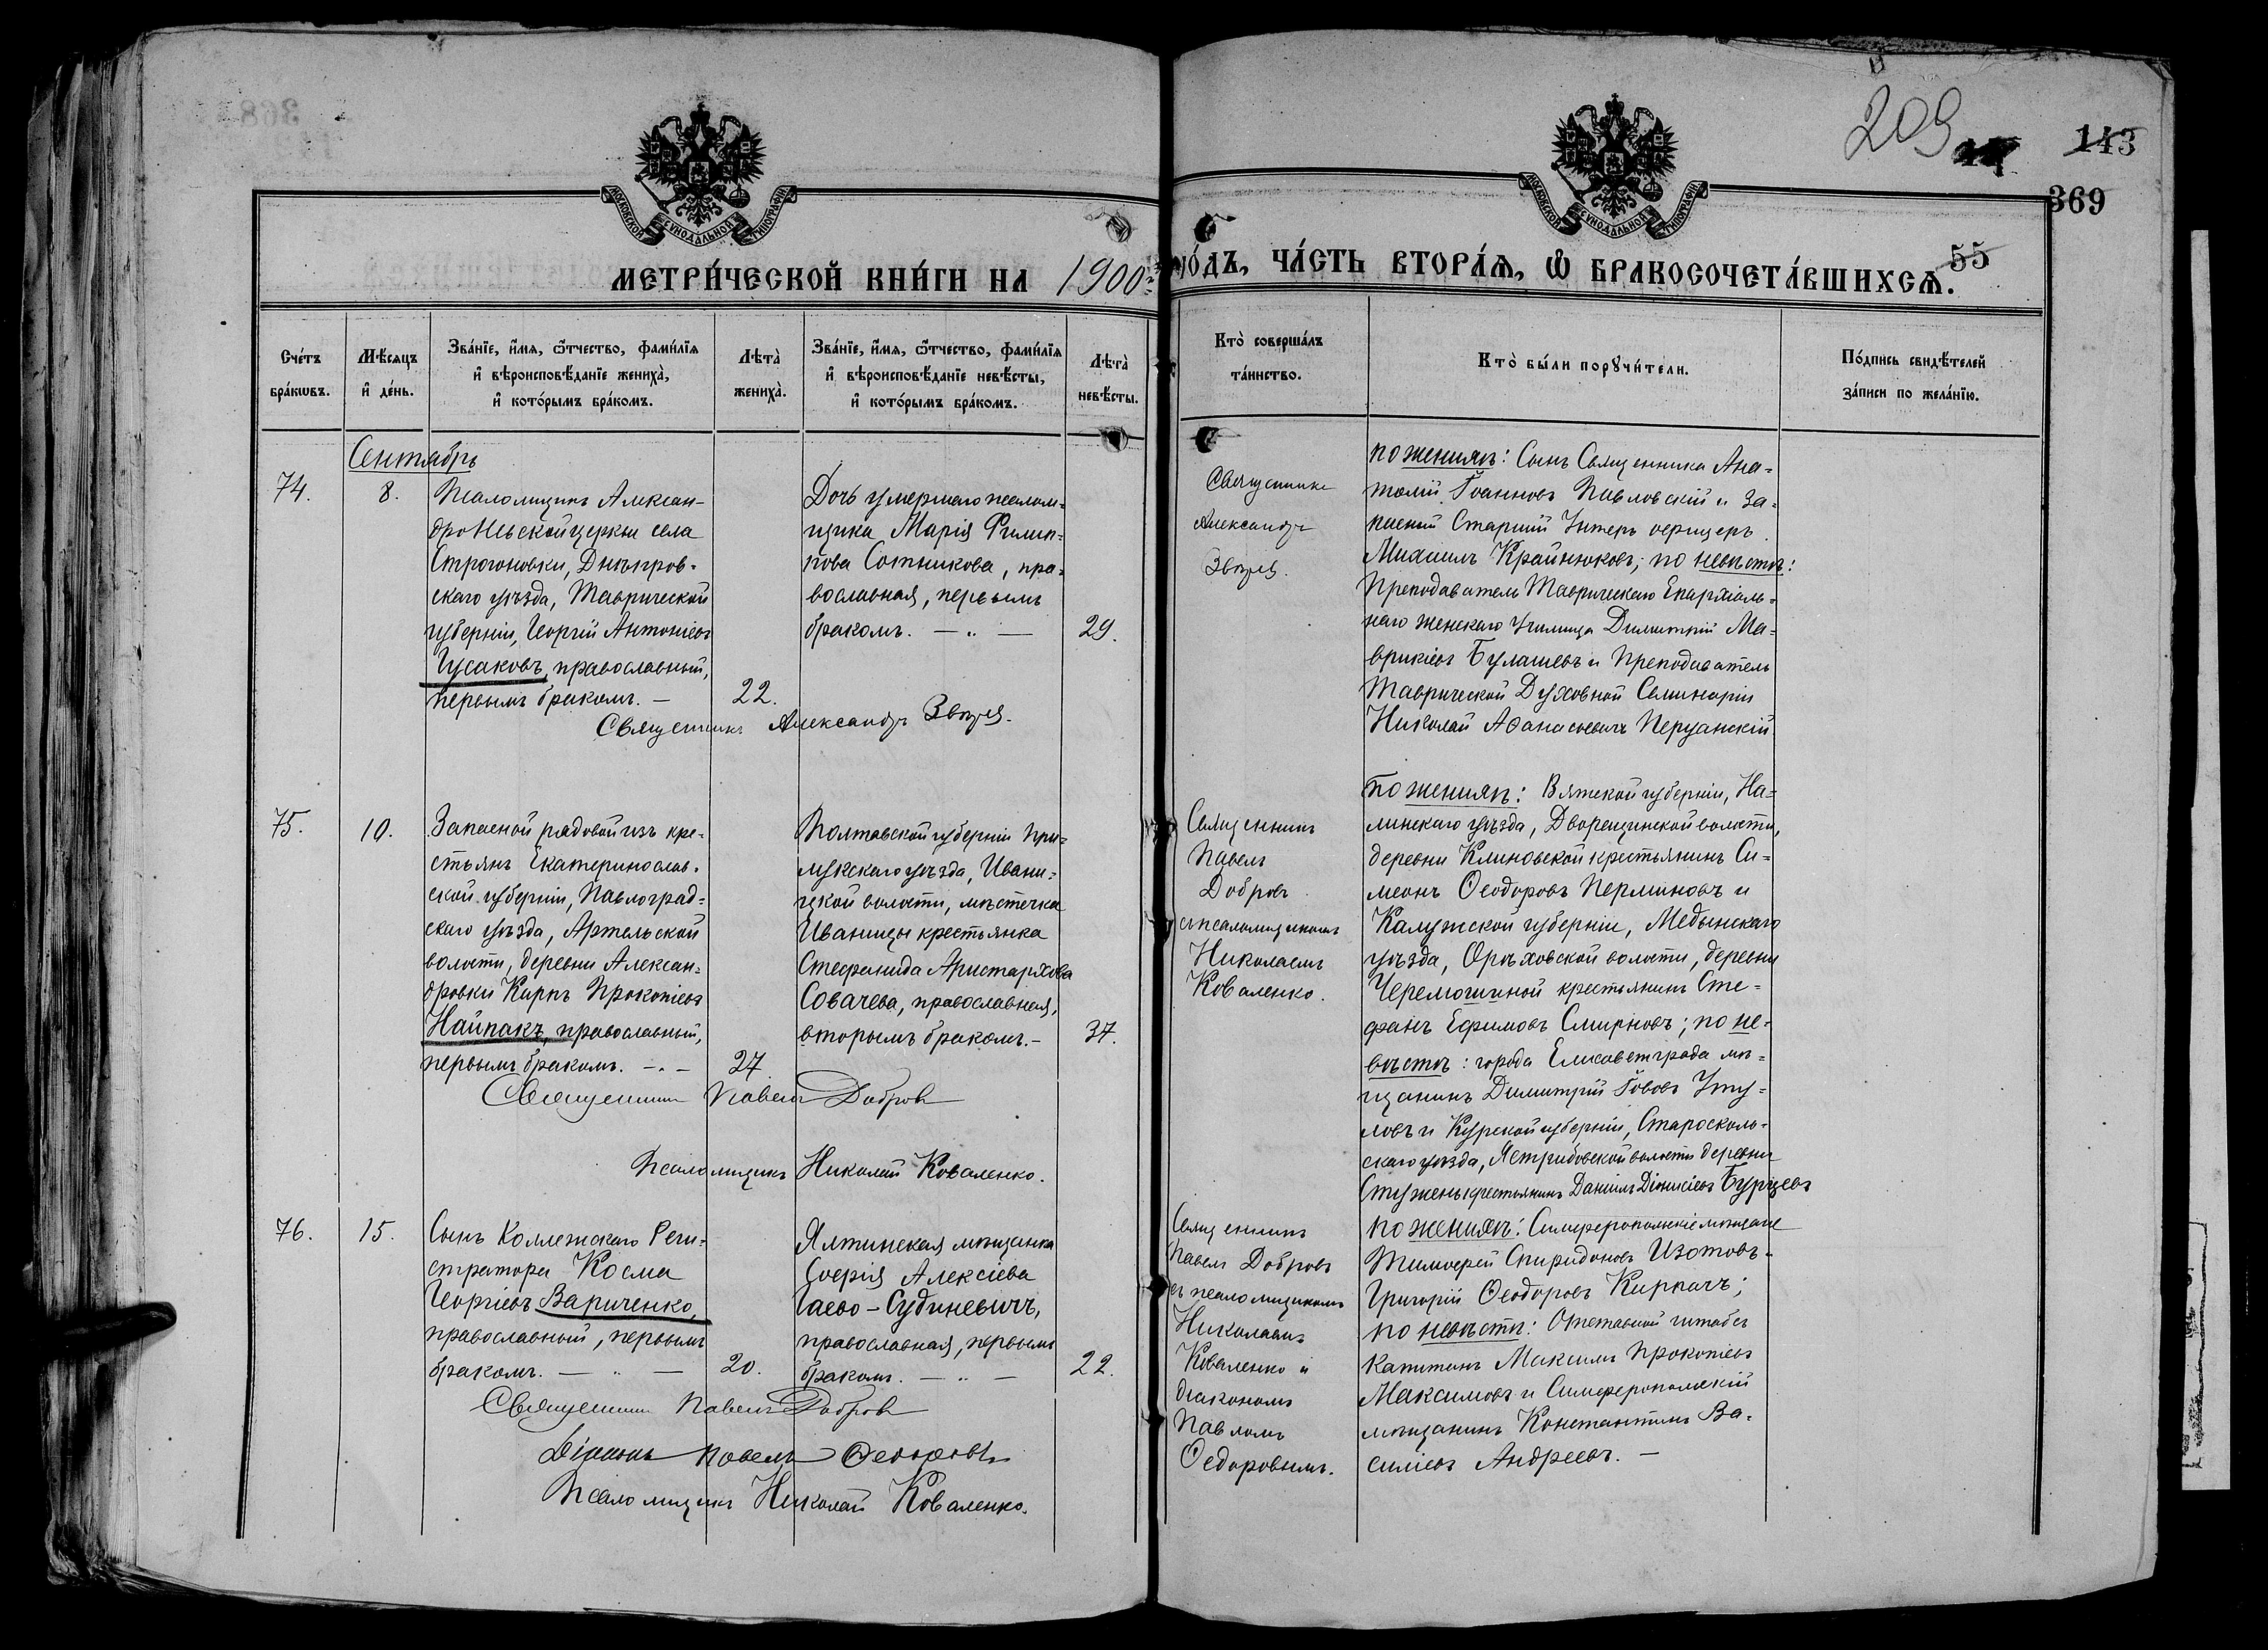 209
143
369
55
МОСКОВСКОЙ СѴНОДАЛЬНОЙ ТИПОГРАФІИ
МОСКОВСКОЙ СѴНОДАЛЬНОЙ ТИПОГРАФІИ
МЕТРИ́ЧЕСКОЙ КНИ́ГИ НА 1900й
ГО́ДЪ, ЧА́СТЬ ВТОРА́Ѧ, Ѽ БРАКОСОЧЕТА́ВШИХСѦ.
Сче́тъ бра́кѡвъ.
Мѣ́сяцъ и҆ де́нь.
Зва́нїе, и҆́мя, ѻ҆́тчество, фами́лїя и҆ вѣроисповѣ́данїе жениха̀, и҆ кото́рымъ бра́комъ.
Лѣта̀ жениха̀.
Зва́нїе, и҆́мя, ѻ҆́тчество, фами́лїя и҆ вѣроисповѣ́данїе невѣ́сты, и҆ кото́рымъ бра́комъ.
Лѣта̀ невѣ́сты.
Кто̀ соверша́лъ та́инство.
Кто̀ бы́ли порꙋчи́тели.
По́дпись свидѣ́телей за́писи по жела́нїю.
Сентябрь
74.
8.
Псаломщикъ Алексан-
дроневской церкви села
Строгоновки, Днѣпров-
скаго уѣзда, Таврической
губерніи, Георгій Антоніевъ
Гусаковъ, православный,
первымъ бракомъ. —
22.
Дочь умершаго псалом-
щика Марія Филип-
пова Сотникова, пра-
вославная, первымъ
бракомъ. — „ —
29.
Священникъ Александръ Звѣревъ.
Священникъ
Александръ
Звѣревъ.
по женихѣ: Сынъ Священника Ана-
толій Іоанновъ Павловскій и за-
пасный Старшій Унтеръ офицеръ
Михаилъ Крайнюковъ; по невѣстѣ:
Преподаватель Таврическаго Епархіаль-
наго женскаго Училища Димитрій Ма-
врикіевъ Булашевъ и Преподаватель
Таврической Духовной Семинаріи
Николай Аѳанасьевичъ Перуанскій
75.
10.
Запасной рядовой изъ кре-
стьянъ Екатеринослав-
ской губерніи, Павлоград-
скаго уѣзда, Артельской
волости, деревни Алексан-
дровки Карпъ Прокопіевъ
Найпакъ, православный,
первымъ бракомъ. —.—
27
Полтавской губерніи При-
лукскаго уѣзда, Ивани-
цкой волости, мѣстечка
Иваницы крестьянка
Стефанида Аристархова
Совачева, православная,
вторымъ бракомъ. —
37.
Священникъ Павелъ Добровъ
Псаломщикъ Николай Коваленко.
Священникъ
Павелъ
Добровъ
съ псаломщикомъ
Николаемъ
Коваленко.
По женихѣ: Вятской губерніи, На-
линскаго уѣзда, Дворещинской волости,
деревни Климовской крестьянинъ Си-
меонъ Ѳеодоровъ Перминовъ и
Калужской губерніи, Медынскаго
уѣзда, Орѣховской волости, деревни
Черемошиной крестьянинъ Сте-
фанъ Ефимовъ Смирновъ; по не-
вѣстѣ: города Елисаветграда мѣ-
щанинъ Димитрій Іововъ Уту-
ловъ и Курской губерніи, Староосколь-
скаго уѣзда, Ястребовской волости деревни
Стужень крестьянинъ Даніилъ Діонисіевъ Бурцевъ
76.
15.
Сынъ Коллежскаго Реги-
стратора Косма
Георгіевъ Вариченко,
православный, первымъ
бракомъ. — „ —
20.
Ялтинская мѣщанка
Софія Алексіева
Гаево-Судиневичъ,
православная, первымъ
бракомъ. — „ —
22.
Священникъ Павелъ Добровъ
Діаконъ Павелъ Ѳедоровъ
Псаломщикъ Николай Коваленко.
Священникъ
Павелъ Добровъ
съ псаломщикомъ
Николаемъ
Коваленко и
діакономъ
Павломъ
Ѳедоровымъ.
по женихѣ: Симферопольскіе мѣщане
Тимофей Спиридоновъ Изотовъ
Григорій Ѳеодоровъ Киркачъ;
по невѣстѣ: Отставной штабсъ
капитанъ Максимъ Прокопіевъ
Максимовъ и Симферопольскій
мѣщанинъ Константинъ Ва-
силіевъ Андреевъ. —